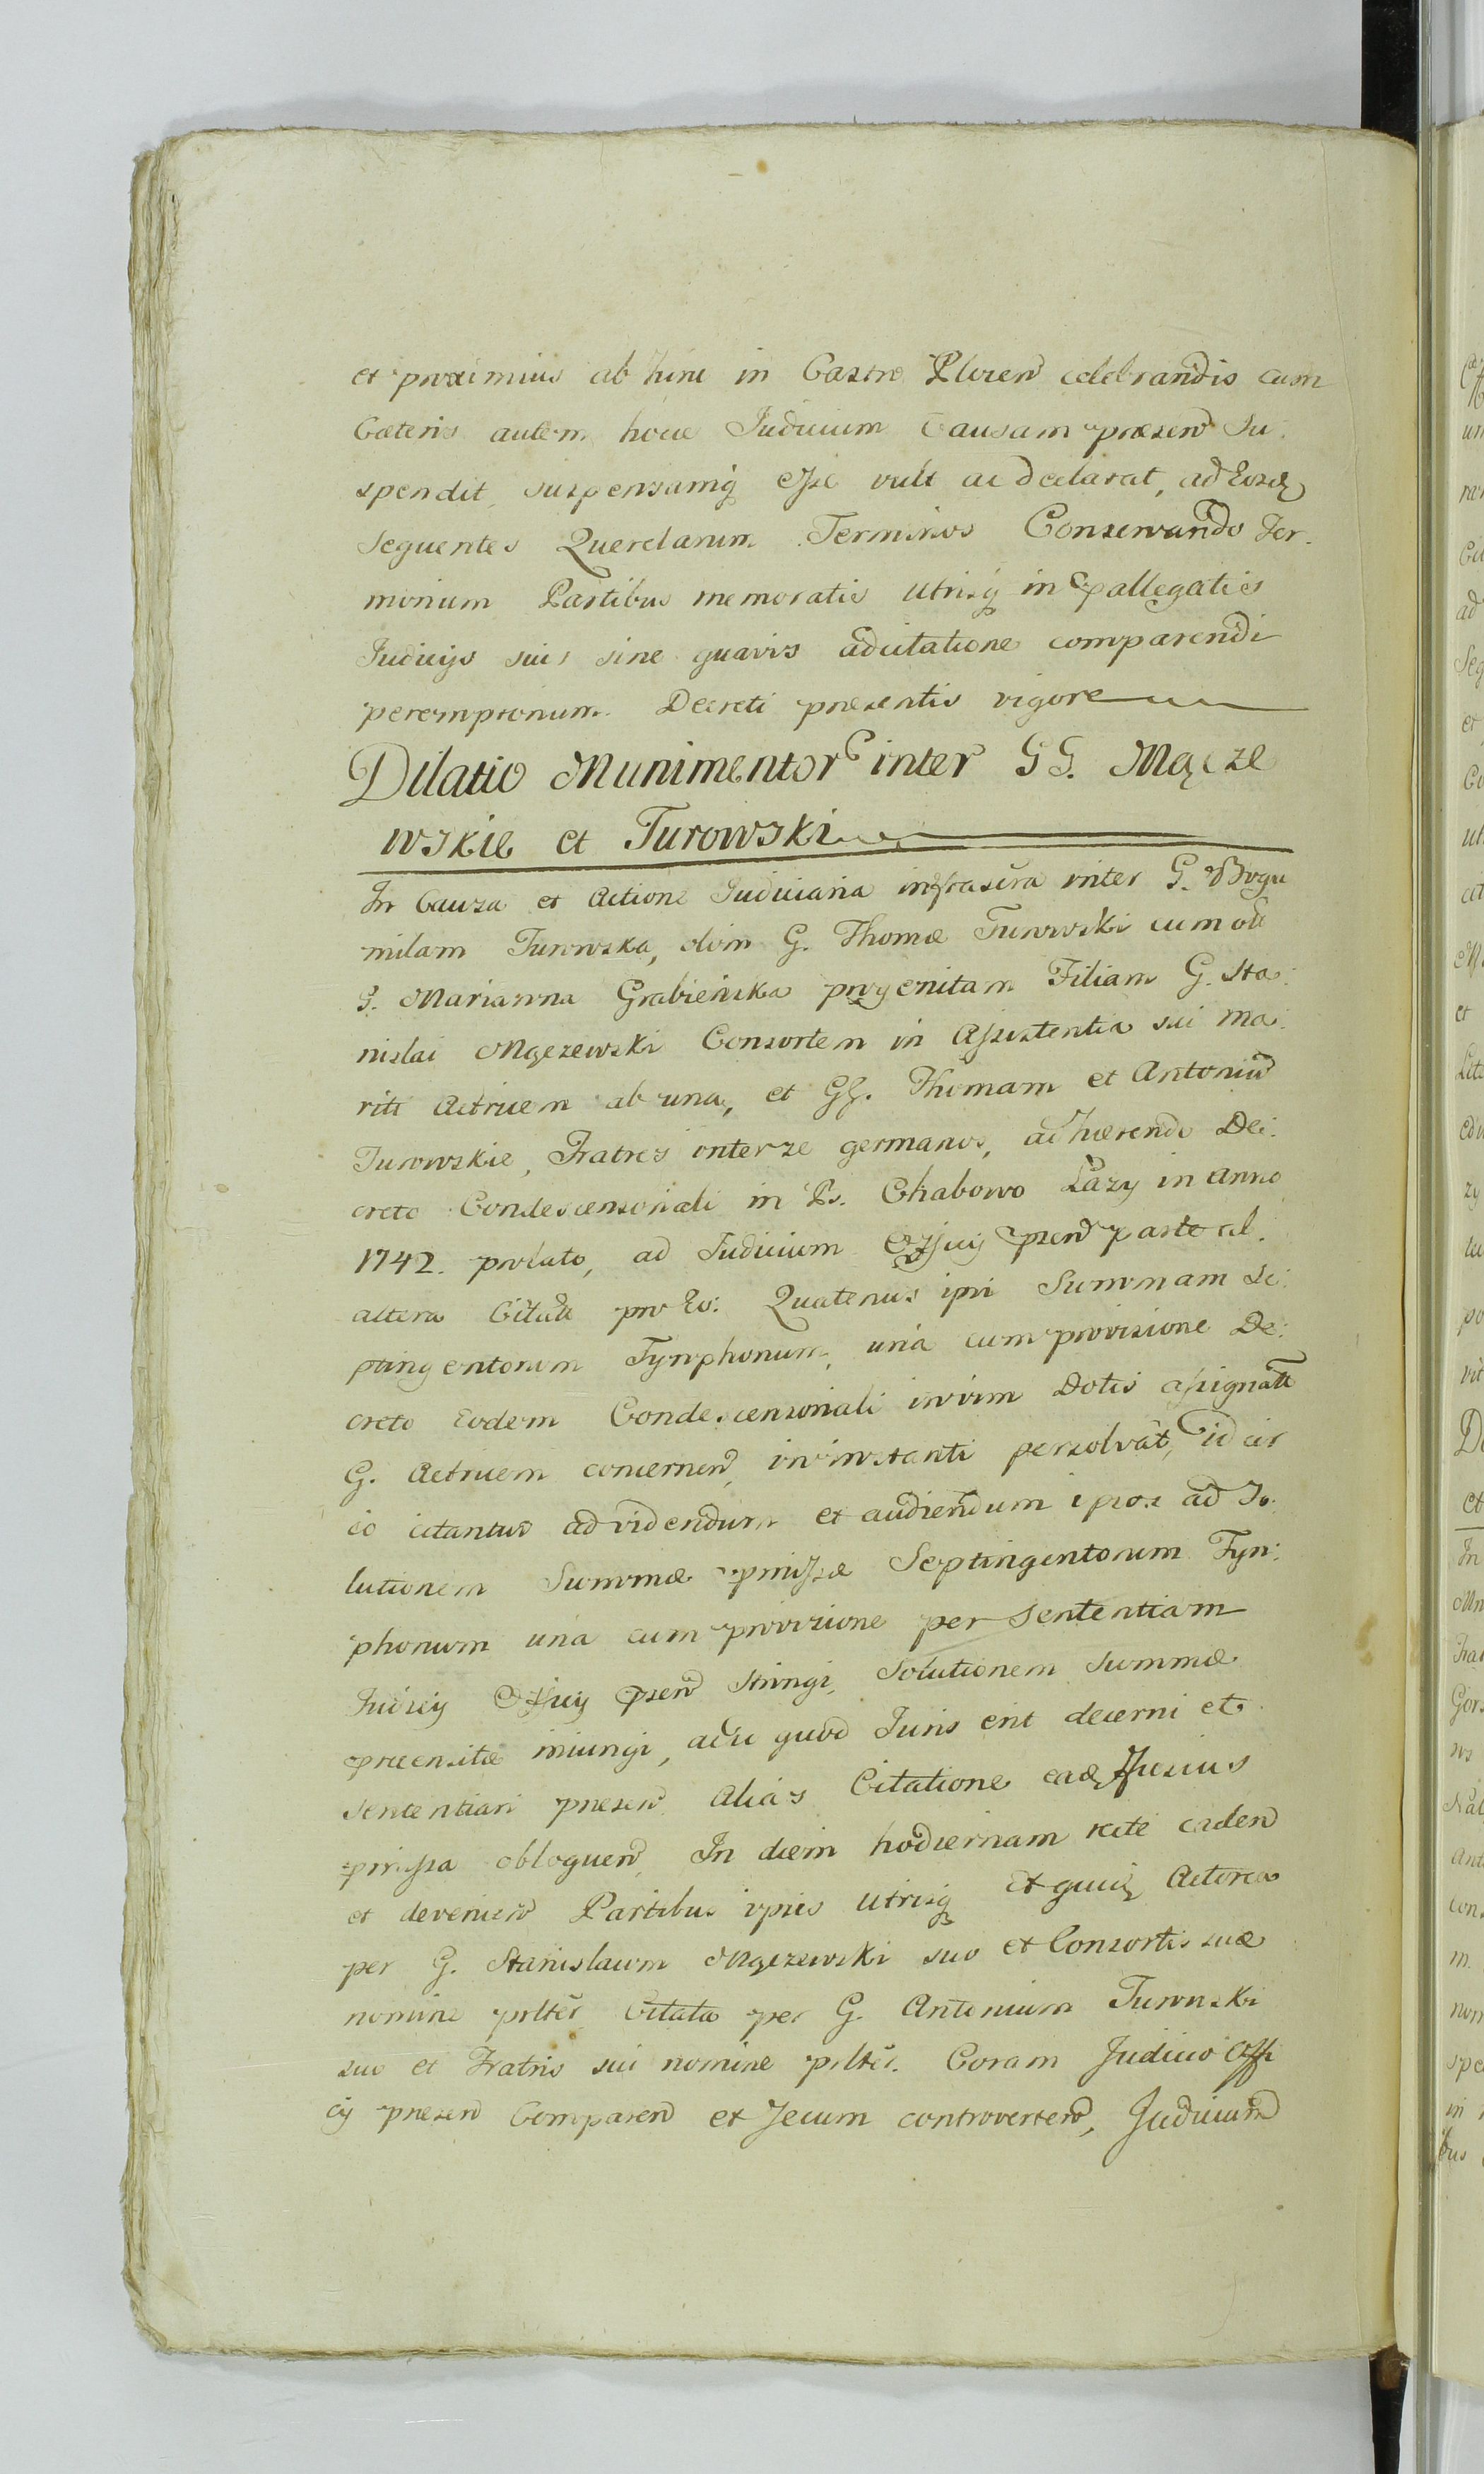 et proximius ab hinc in Castro Plocen celebrandis cum
Cæteris autem hocce Judicium Causam præsen Su:
spendit, suspensamq̃ esse vult ac declarat, ad Eosdẽ
sequentes Querelarum Terminos Conservando Ter:
minum Partibus memoratis utrisq̃ in pallegatis
Judicijs suis sine quavis adcitatione comparendi
peremptorium. Decreti præsentis vigore
Dilatio Munimentor inter GG. Mącze
wskie et Turowski
In Causa et Actione Judiciaria infrascra inter G. Bogu
milam Turowska, olim G. Thomæ Turowski cum oli
G. Marianna Grabieńska progenitam Filiam G. Sta:
nislai Mączewski Consortem in Assistentia sui ma:
riti Actricem ab una, et GG. Thomam et Antoniu
Turowskie, Fratres inter se germanos, adhærendo De:
creto Condescensoriali in Bs. Chabowo Łazy in Anno
1742. prolato, ad Judicium Officij præn parte al.
altera Citati pro Eo: Quatenus ipsi Summam Se:
ptingentorum Tynphonum, una cum provisione De:
creto eodem Condescensoriali in vim Dotis assignati
G. Actricem concernen, in instanti persolvat, id cir
co citantur ad videndum et audiendum ipsos ad So:
lutionem Summæ pmissæ Septingentorum Tyn:
phonum una cum provisione per Sententiam
Judicij Officij præn stringi, Solutionem Summæ
præcensitæ iniungi, adic quod Juris erit decerni et
sententiari præsen Alias Citatione eadẽ fusius
pmissa obloquen, In diem hodiernam rite caden
et devenien Partibus ipsis utrisq̃ Et quidẽ Actorea
per G. Stanislaum Mączewski suo et Consortis suæ
nomine prlter Citata per G. Antonium Turowski
suo et Fratris sui nomine prlter. Coram Judicio Offi
cij præsen Comparen et secum controverten, Judicium